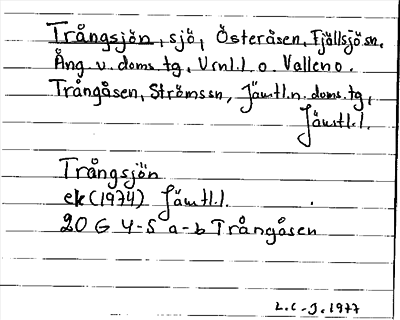 Trångsjön, sjö, Österåsen, Fjällsjö sn,
Äng v. doms. tg, Vrnl.l o. Valleno.
Trångåsen, Ströms sn, Jämtl. n. doms. tg,
Jämtl. l.
Trångsjön
ek (1974) Jämtl. l.
20 G 4-5 a-b Trångåsen
L.C-J. 1977